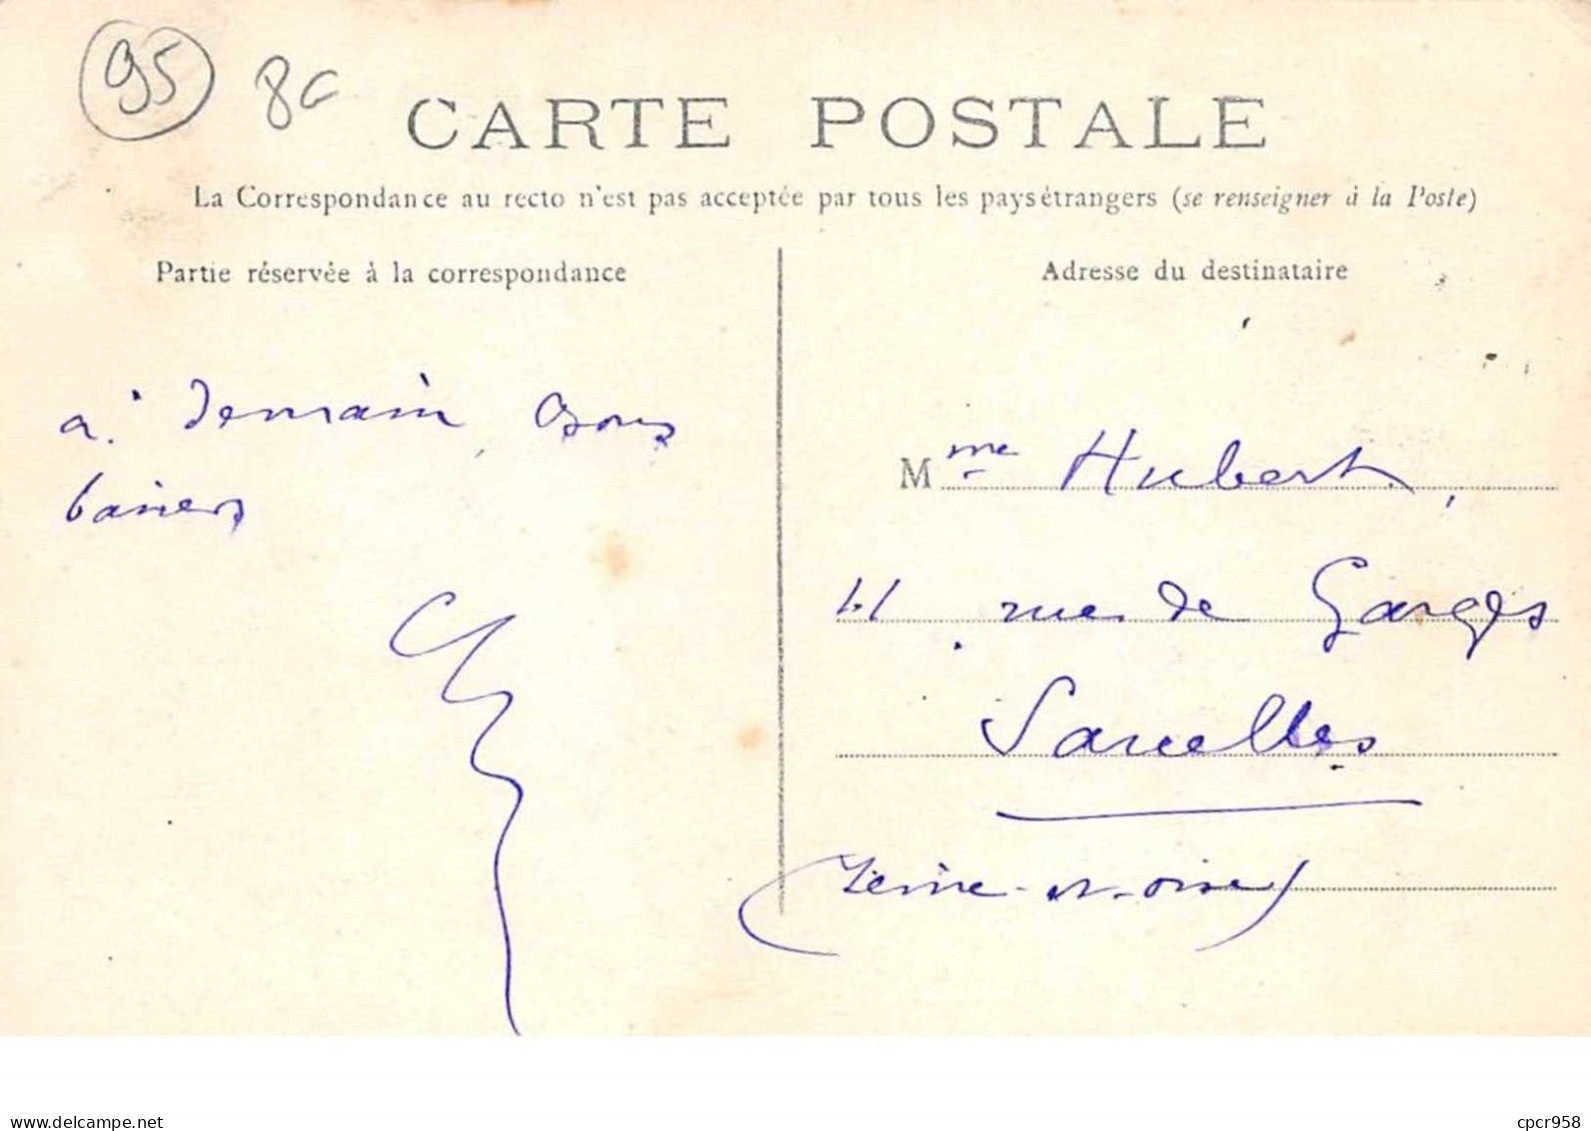 95 8c
CARTE POSTALE
La Correspondance au recto n'est pas acceptée par tous les pays étrangers (se renseigner à la Poste)
Partie réservée à la correspondance
Adresse du destinataire
à demain, bons
baisers
Mme Hubert,
41 rue de Garges
Sarcelles
(Seine-et-Oise)
www.delcampe.net
cpcr958